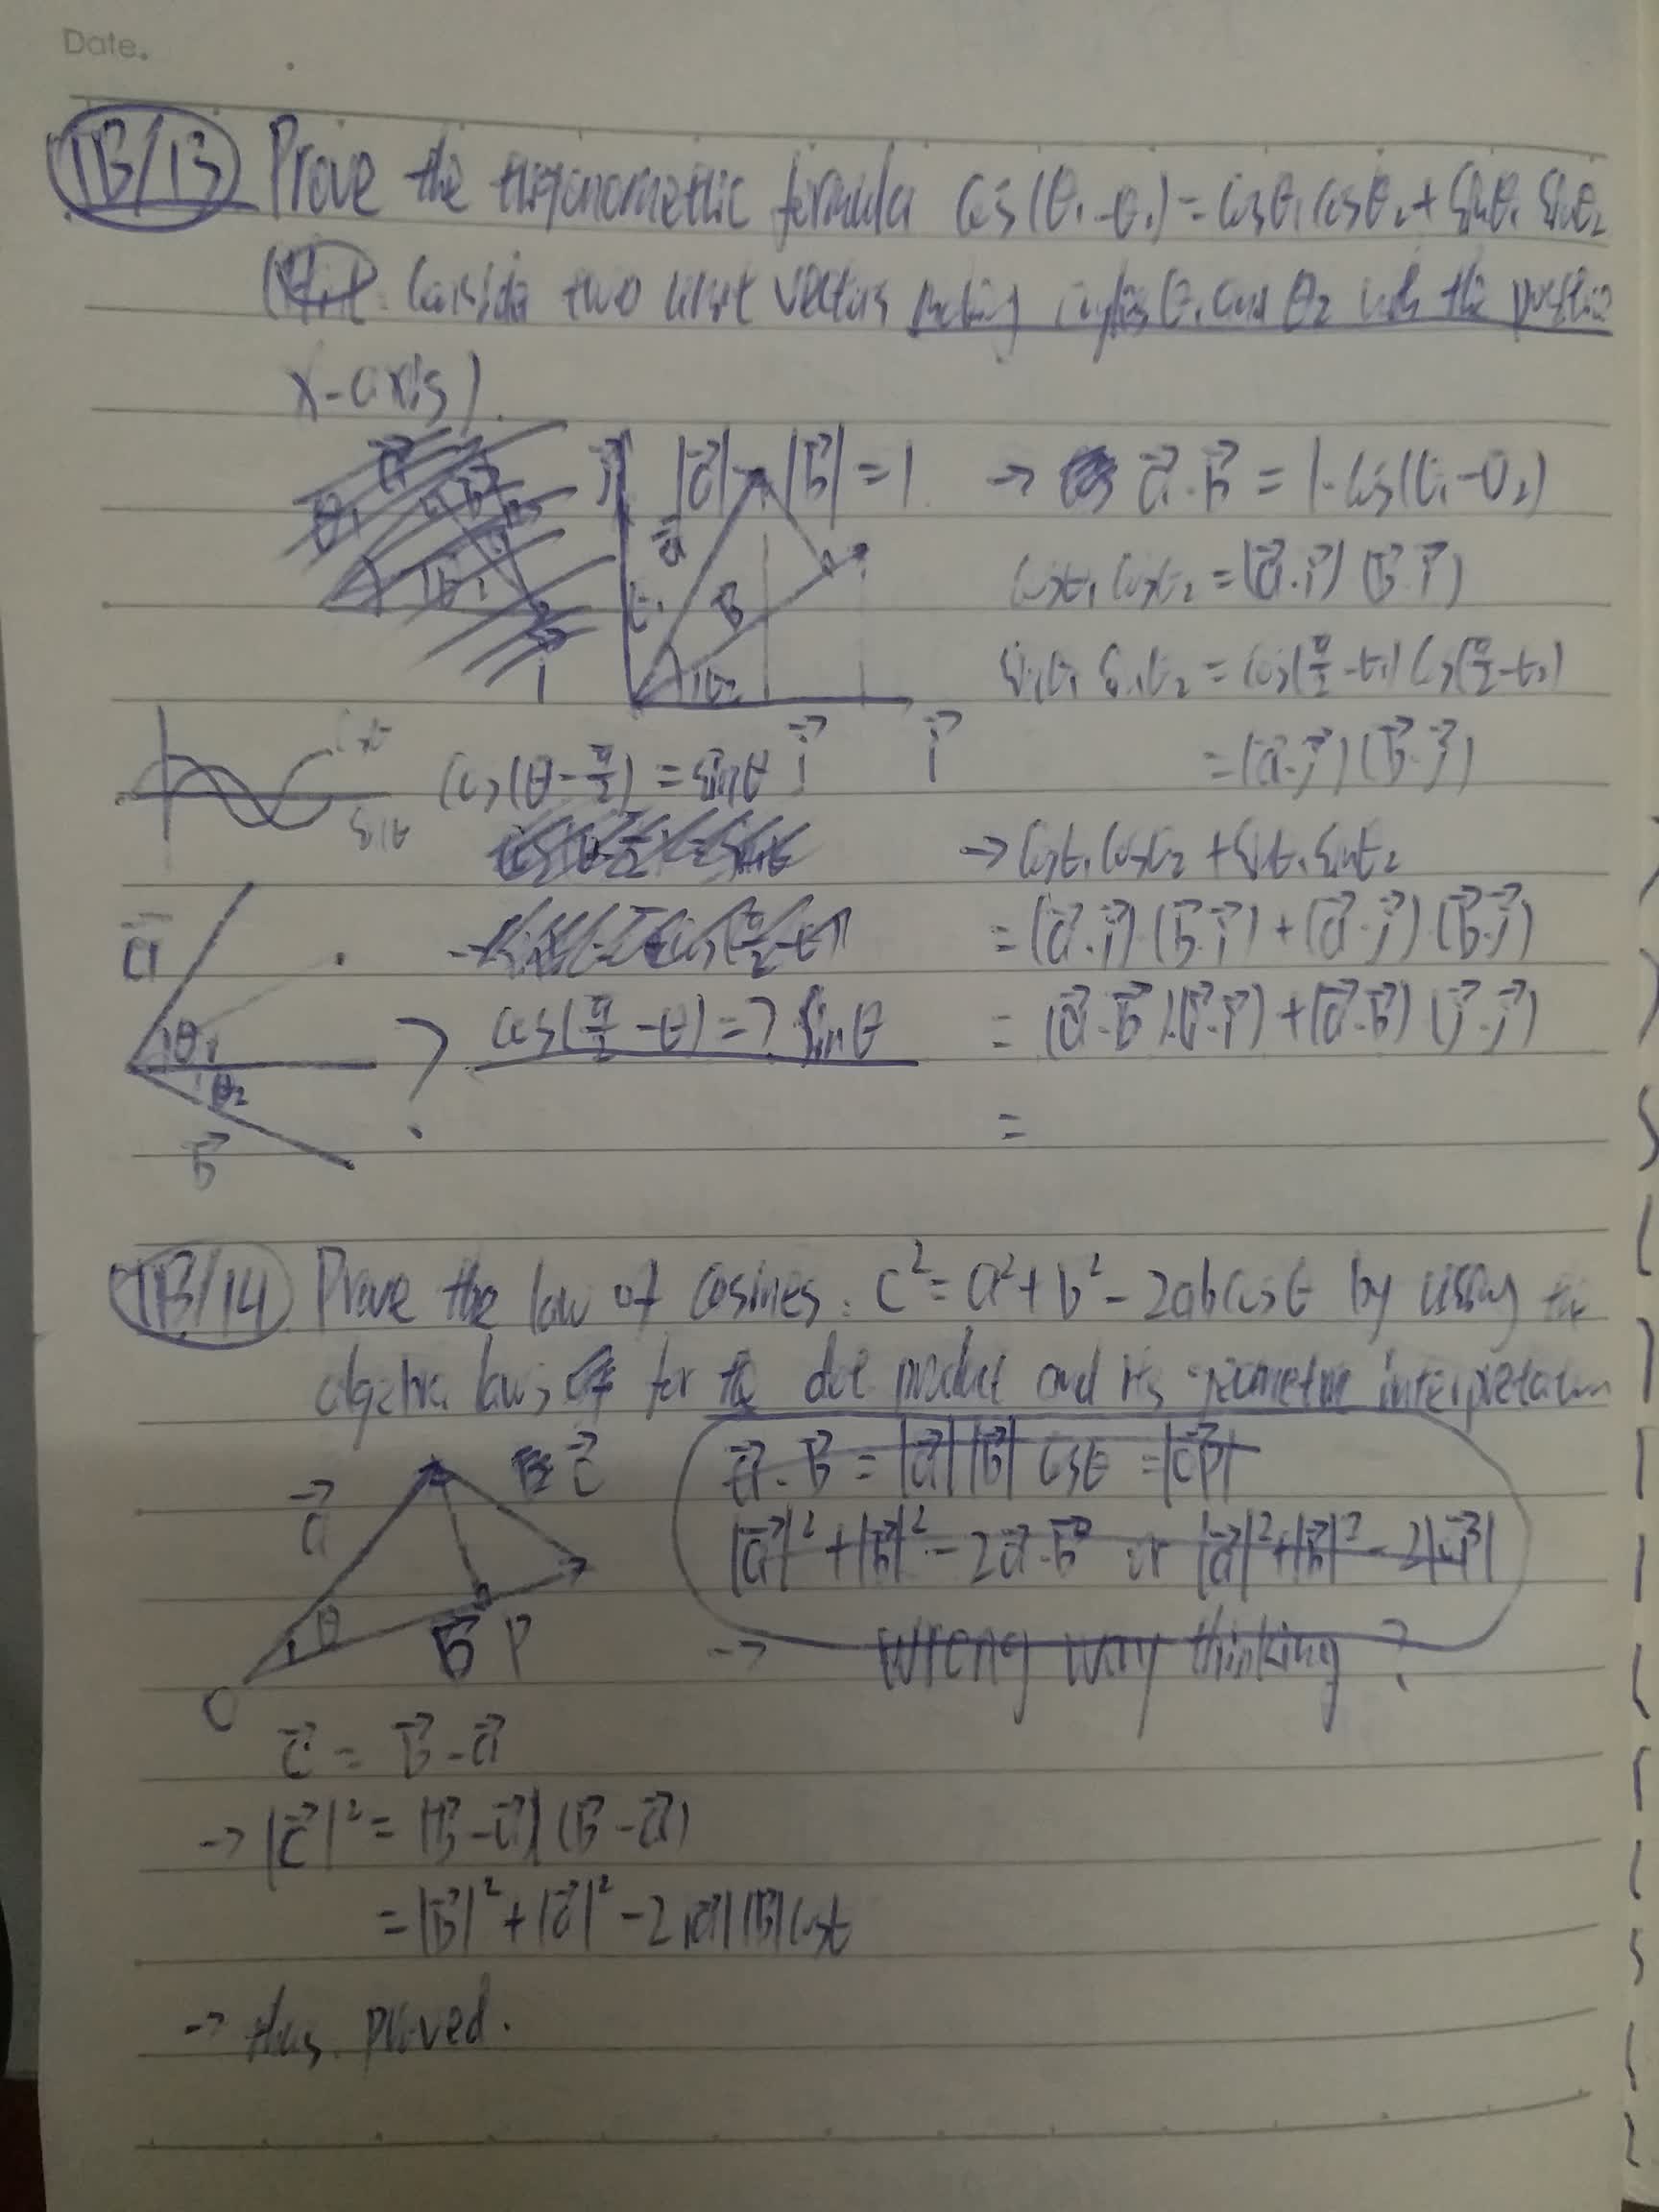 Date.
1B/13 Prove the trigonometric formula cos(θ₁-θ₂)=cosθ₁cosθ₂+sinθ₁ sinθ₂
(Hint: Consider two unit vectors making angles θ₁ and θ₂ with the positive
x-axis).
|a⃗|=|b⃗|=1 → a⃗·b⃗ = 1·cos(θ₁-θ₂)
j⃗ a⃗ θ₁ b⃗ θ₂ i⃗
cosθ₁ cosθ₂ = (a⃗·i⃗)(b⃗·i⃗)
sinθ₁ sinθ₂ = cos(π/2-θ₁)cos(π/2-θ₂)
= (a⃗·j⃗)(b⃗·j⃗)
cosθ
sinθ
cos(θ-π/2)=sinθ i⃗
→ cosθ₁cosθ₂+sinθ₁sinθ₂
= (a⃗·i⃗)(b⃗·i⃗)+(a⃗·j⃗)(b⃗·j⃗)
cos(π/2-θ)=? sinθ
= (a⃗·b⃗)(i⃗·i⃗)+(a⃗·b⃗)(j⃗·j⃗)
=
a⃗
θ₁
θ₂
b⃗
?
1B/14 Prove the law of cosines: c²=a²+b²-2abcosθ by using the
algebraic laws for the dot product and its geometric interpretation
a⃗ c⃗
θ b⃗ P
O
a⃗·b⃗ = |a⃗||b⃗| cosθ = |OP⃗|
|a⃗|²+|b⃗|²-2a⃗·b⃗ or |a⃗|²+|b⃗|²-2|OP⃗|
→ wrong way thinking?
c⃗ = b⃗-a⃗
→ |c⃗|² = (b⃗-a⃗)(b⃗-a⃗)
= |b⃗|²+|a⃗|²-2|a⃗||b⃗|cosθ
→ thus proved.